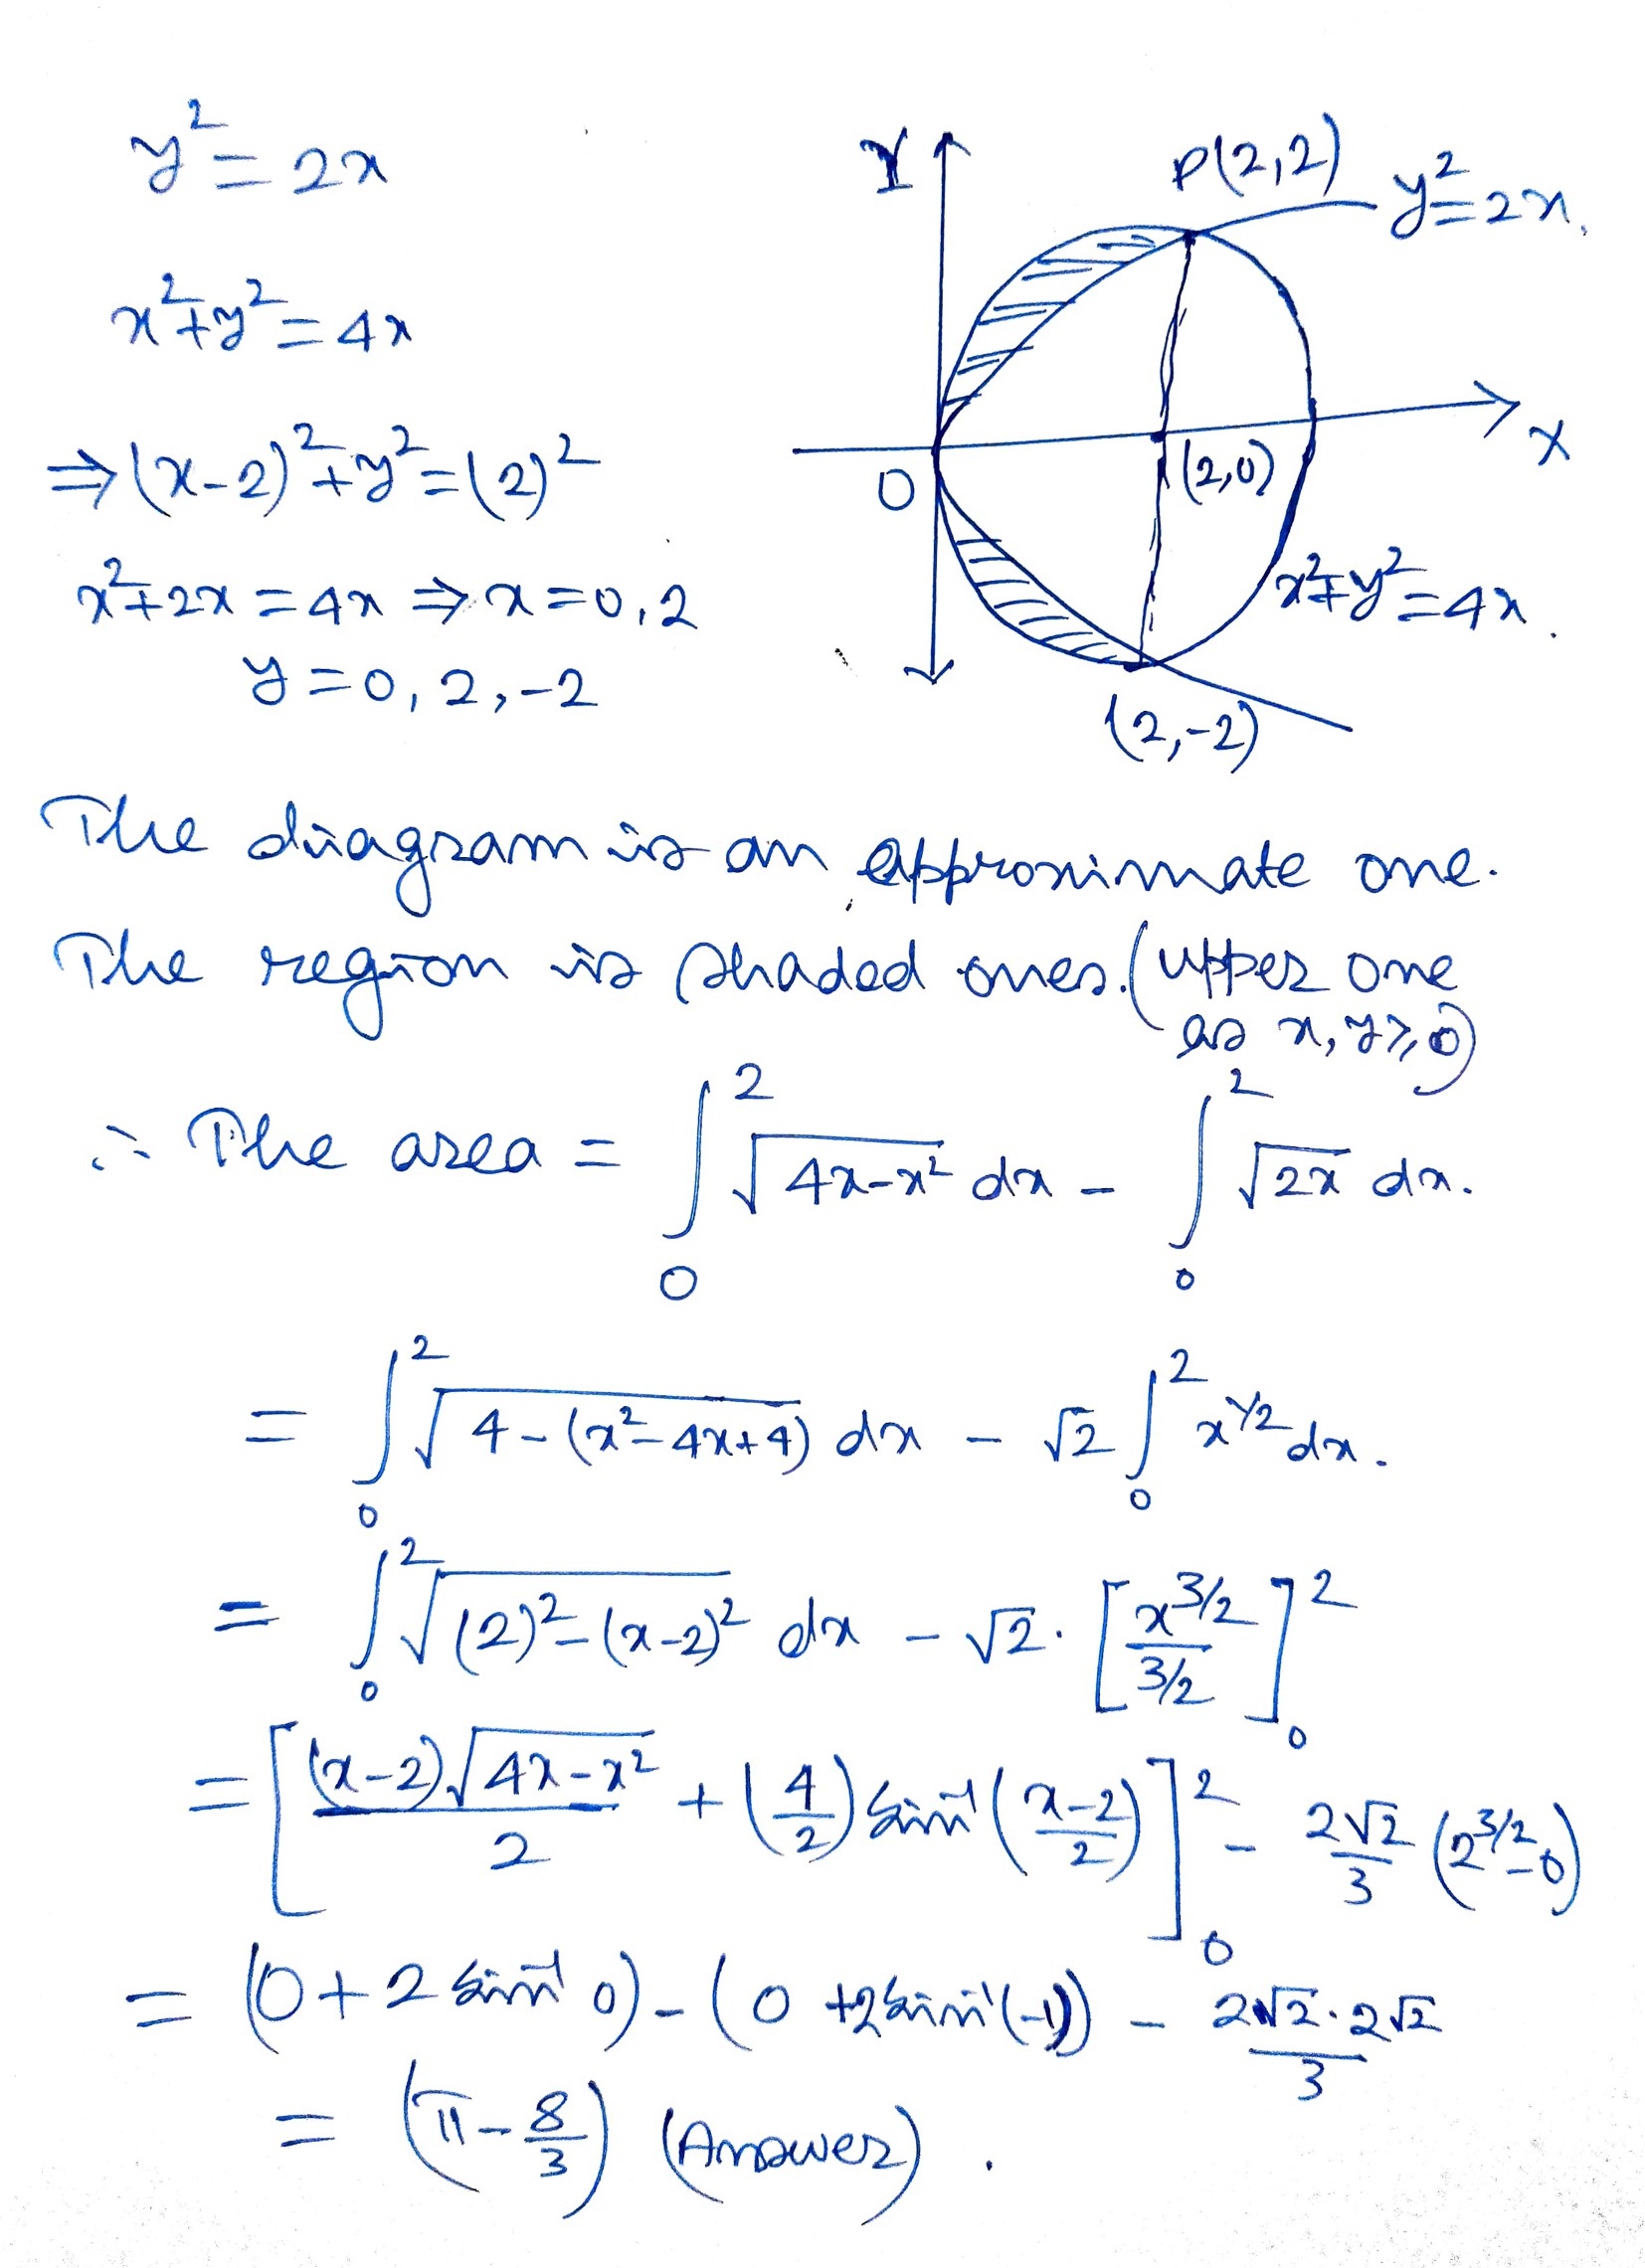 y² = 2x
x² + y² = 4x
⇒ (x-2)² + y² = (2)²
x² + 2x = 4x ⇒ x = 0, 2
y = 0, 2, -2
Y
P(2,2)
y² = 2x.
O
(2,0)
X
x² + y² = 4x.
(2,-2)
The diagram is an approximate one.
The region is shaded ones. (upper one
as x, y ≥ 0)
∴ The area = ∫₀² √(4x-x²) dx - ∫₀² √(2x) dx.
= ∫₀² √(4-(x²-4x+4)) dx - √2 ∫₀² x^(1/2) dx.
= ∫₀² √((2)²-(x-2)²) dx - √2 · [x^(3/2) / (3/2)]₀²
= [(x-2)√(4x-x²) / 2 + (4/2) sin⁻¹((x-2)/2)]₀² - 2√2/3 (2^(3/2) - 0)
= (0 + 2 sin⁻¹ 0) - (0 + 2 sin⁻¹(-1)) - 2√2 · 2√2 / 3
= (π - 8/3) (Answer).